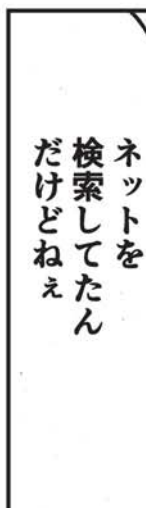 ネットを
検索してたん
だけどねぇ